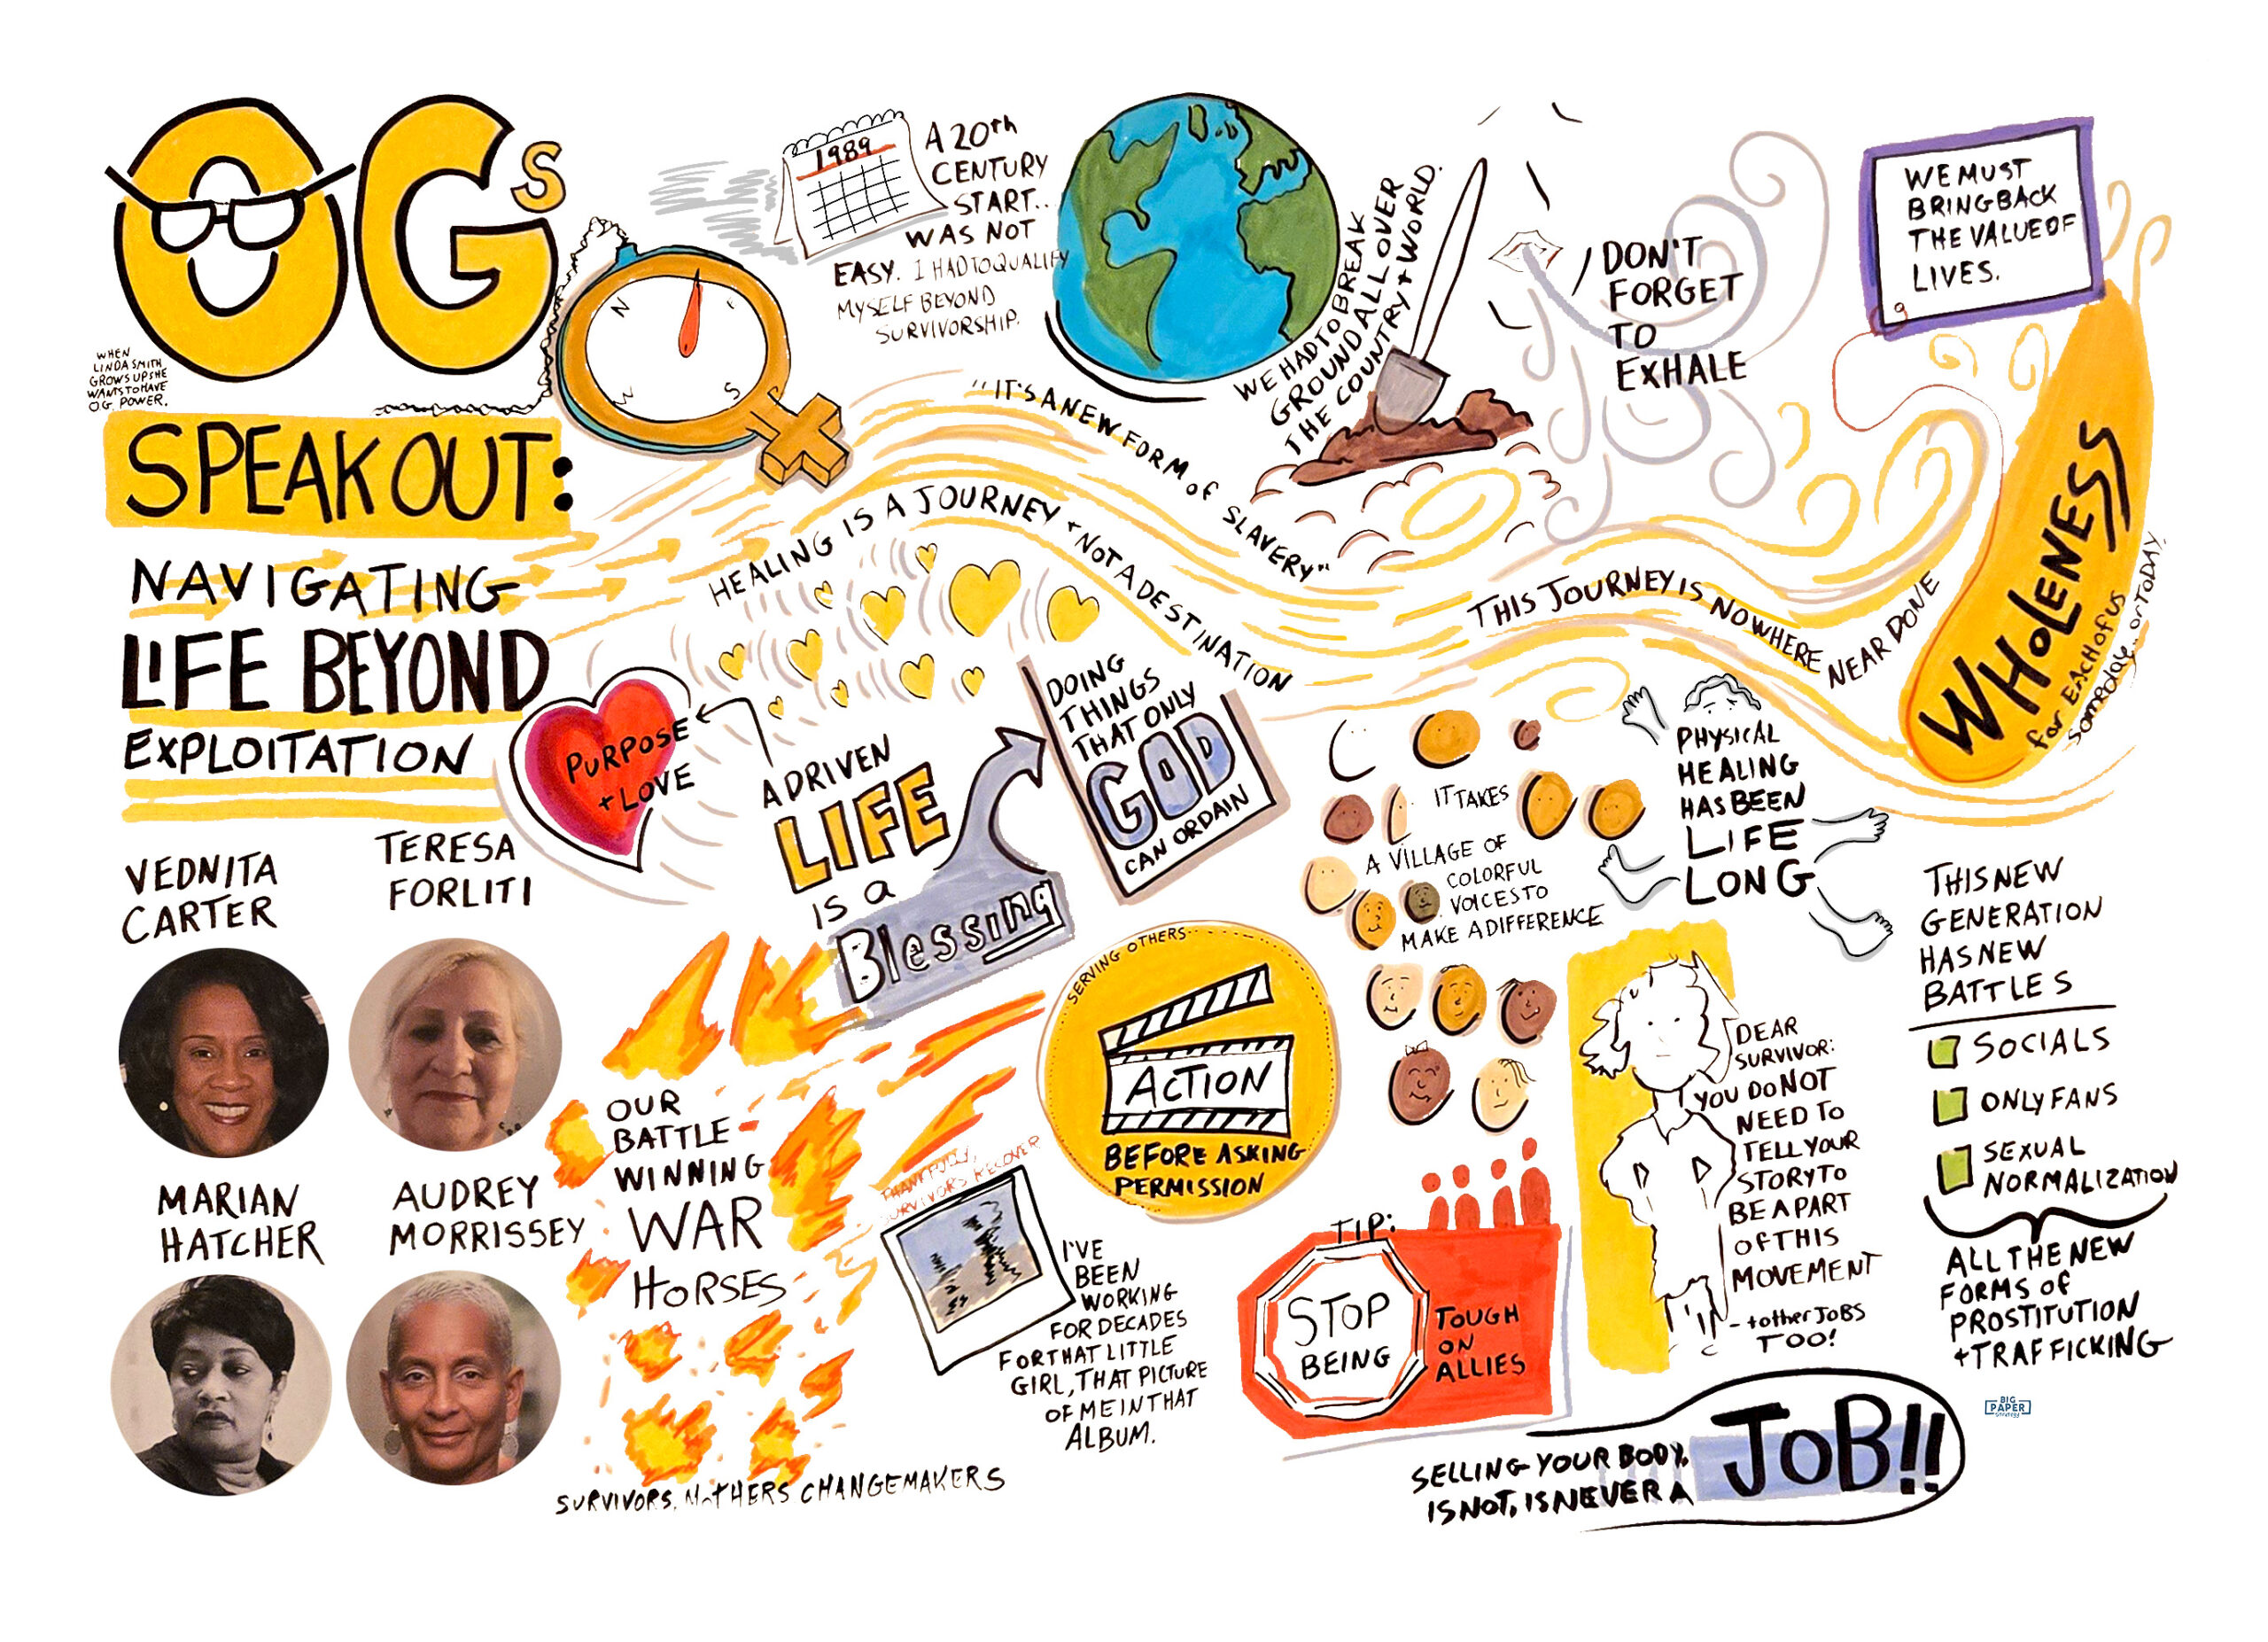 OGs
WHEN
LINDA SMITH
GROWS UP SHE
WANTS TO HAVE
OG POWER.
SPEAK OUT:
NAVIGATING
LIFE BEYOND
EXPLOITATION
VEDNITA
CARTER
TERESA
FORLITI
MARIAN
HATCHER
AUDREY
MORRISSEY
N
S
W
1989
A 20th
CENTURY
START..
WAS NOT
EASY. I HAD TO QUALIFY
MYSELF BEYOND
SURVIVORSHIP.
WE HAD TO BREAK
GROUND ALL OVER
THE COUNTRY + WORLD.
DON'T
FORGET
TO
EXHALE
WE MUST
BRING BACK
THE VALUE OF
LIVES.
"IT'S A NEW FORM of SLAVERY"
HEALING IS A JOURNEY + NOT A DESTINATION
THIS JOURNEY IS NOWHERE NEAR DONE
WHOLENESS
for EACH of us
someday.. or TODAY.
PURPOSE
+ LOVE
A DRIVEN
LIFE
is a
Blessing
DOING
THINGS
THAT ONLY
GOD
CAN ORDAIN
IT TAKES
A VILLAGE OF
COLORFUL
VOICES TO
MAKE A DIFFERENCE
PHYSICAL
HEALING
HAS BEEN
LIFE
LONG
THIS NEW
GENERATION
HAS NEW
BATTLES
SOCIALS
ONLY FANS
SEXUAL
NORMALIZATION
ALL THE NEW
FORMS of
PROSTITUTION
+ TRAFFICKING
OUR
BATTLE-
WINNING
WAR
HORSES
SURVIVORS, MOTHERS CHANGEMAKERS
SERVING OTHERS
ACTION
BEFORE ASKING
PERMISSION
THANKFULLY,
SURVIVORS RECOVER
I'VE
BEEN
WORKING
FOR DECADES
FOR THAT LITTLE
GIRL, THAT PICTURE
OF ME IN THAT
ALBUM.
TIP:
STOP
BEING
TOUGH
ON
ALLIES
DEAR
SURVIVOR:
YOU DO NOT
NEED TO
TELL YOUR
STORY TO
BE A PART
OF THIS
MOVEMENT
- + other JOBS
TOO!
SELLING YOUR BODY,
IS NOT, IS NEVER A
JOB!!
BIG
PAPER
Strategy